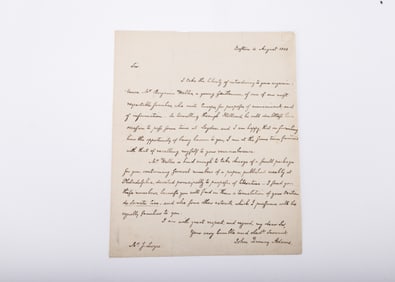 Boston 4 August 1801
Sir
I take the liberty of introducing to your acquain-
tance Mr Benjamin Welles, a young Gentleman, of one of our most
respectable families, who visits Europe for purposes of amusement and
of information. In travelling through Holland, he will doubtless have
occasion to pass some time at Leyden and I am happy that in furnishing
him the opportunity of being known to you, I am at the same time favoured
with that of recalling myself to your remembrance.
Mr Welles is kind enough to take charge of a small package
for you containing several numbers of a paper published weekly at
Philadelphia, devoted principally to purposes of literature. I send you
these numbers, because you will find in them a translation of
de and some other extracts which I presume will be
equally familiar to you.
I am with great respect and regard, my dear Sir,
Your very humble and obedt Servant
John Quincy Adams.
Mr J. Luzac